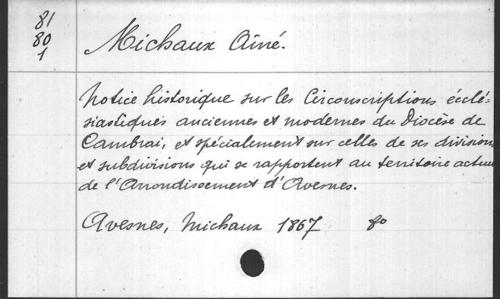 81
80
1
Michaux Aîné.
Notice historique sur les Circonscriptions ecclé-
siastiques anciennes et modernes du Diocèse de
Cambrai, et spécialement sur celles de ses divisions
et subdivisions qui se rapportent au territoire actuel
de l'Arrondissement d'Avesnes.
Avesnes, Michaux 1867 8o